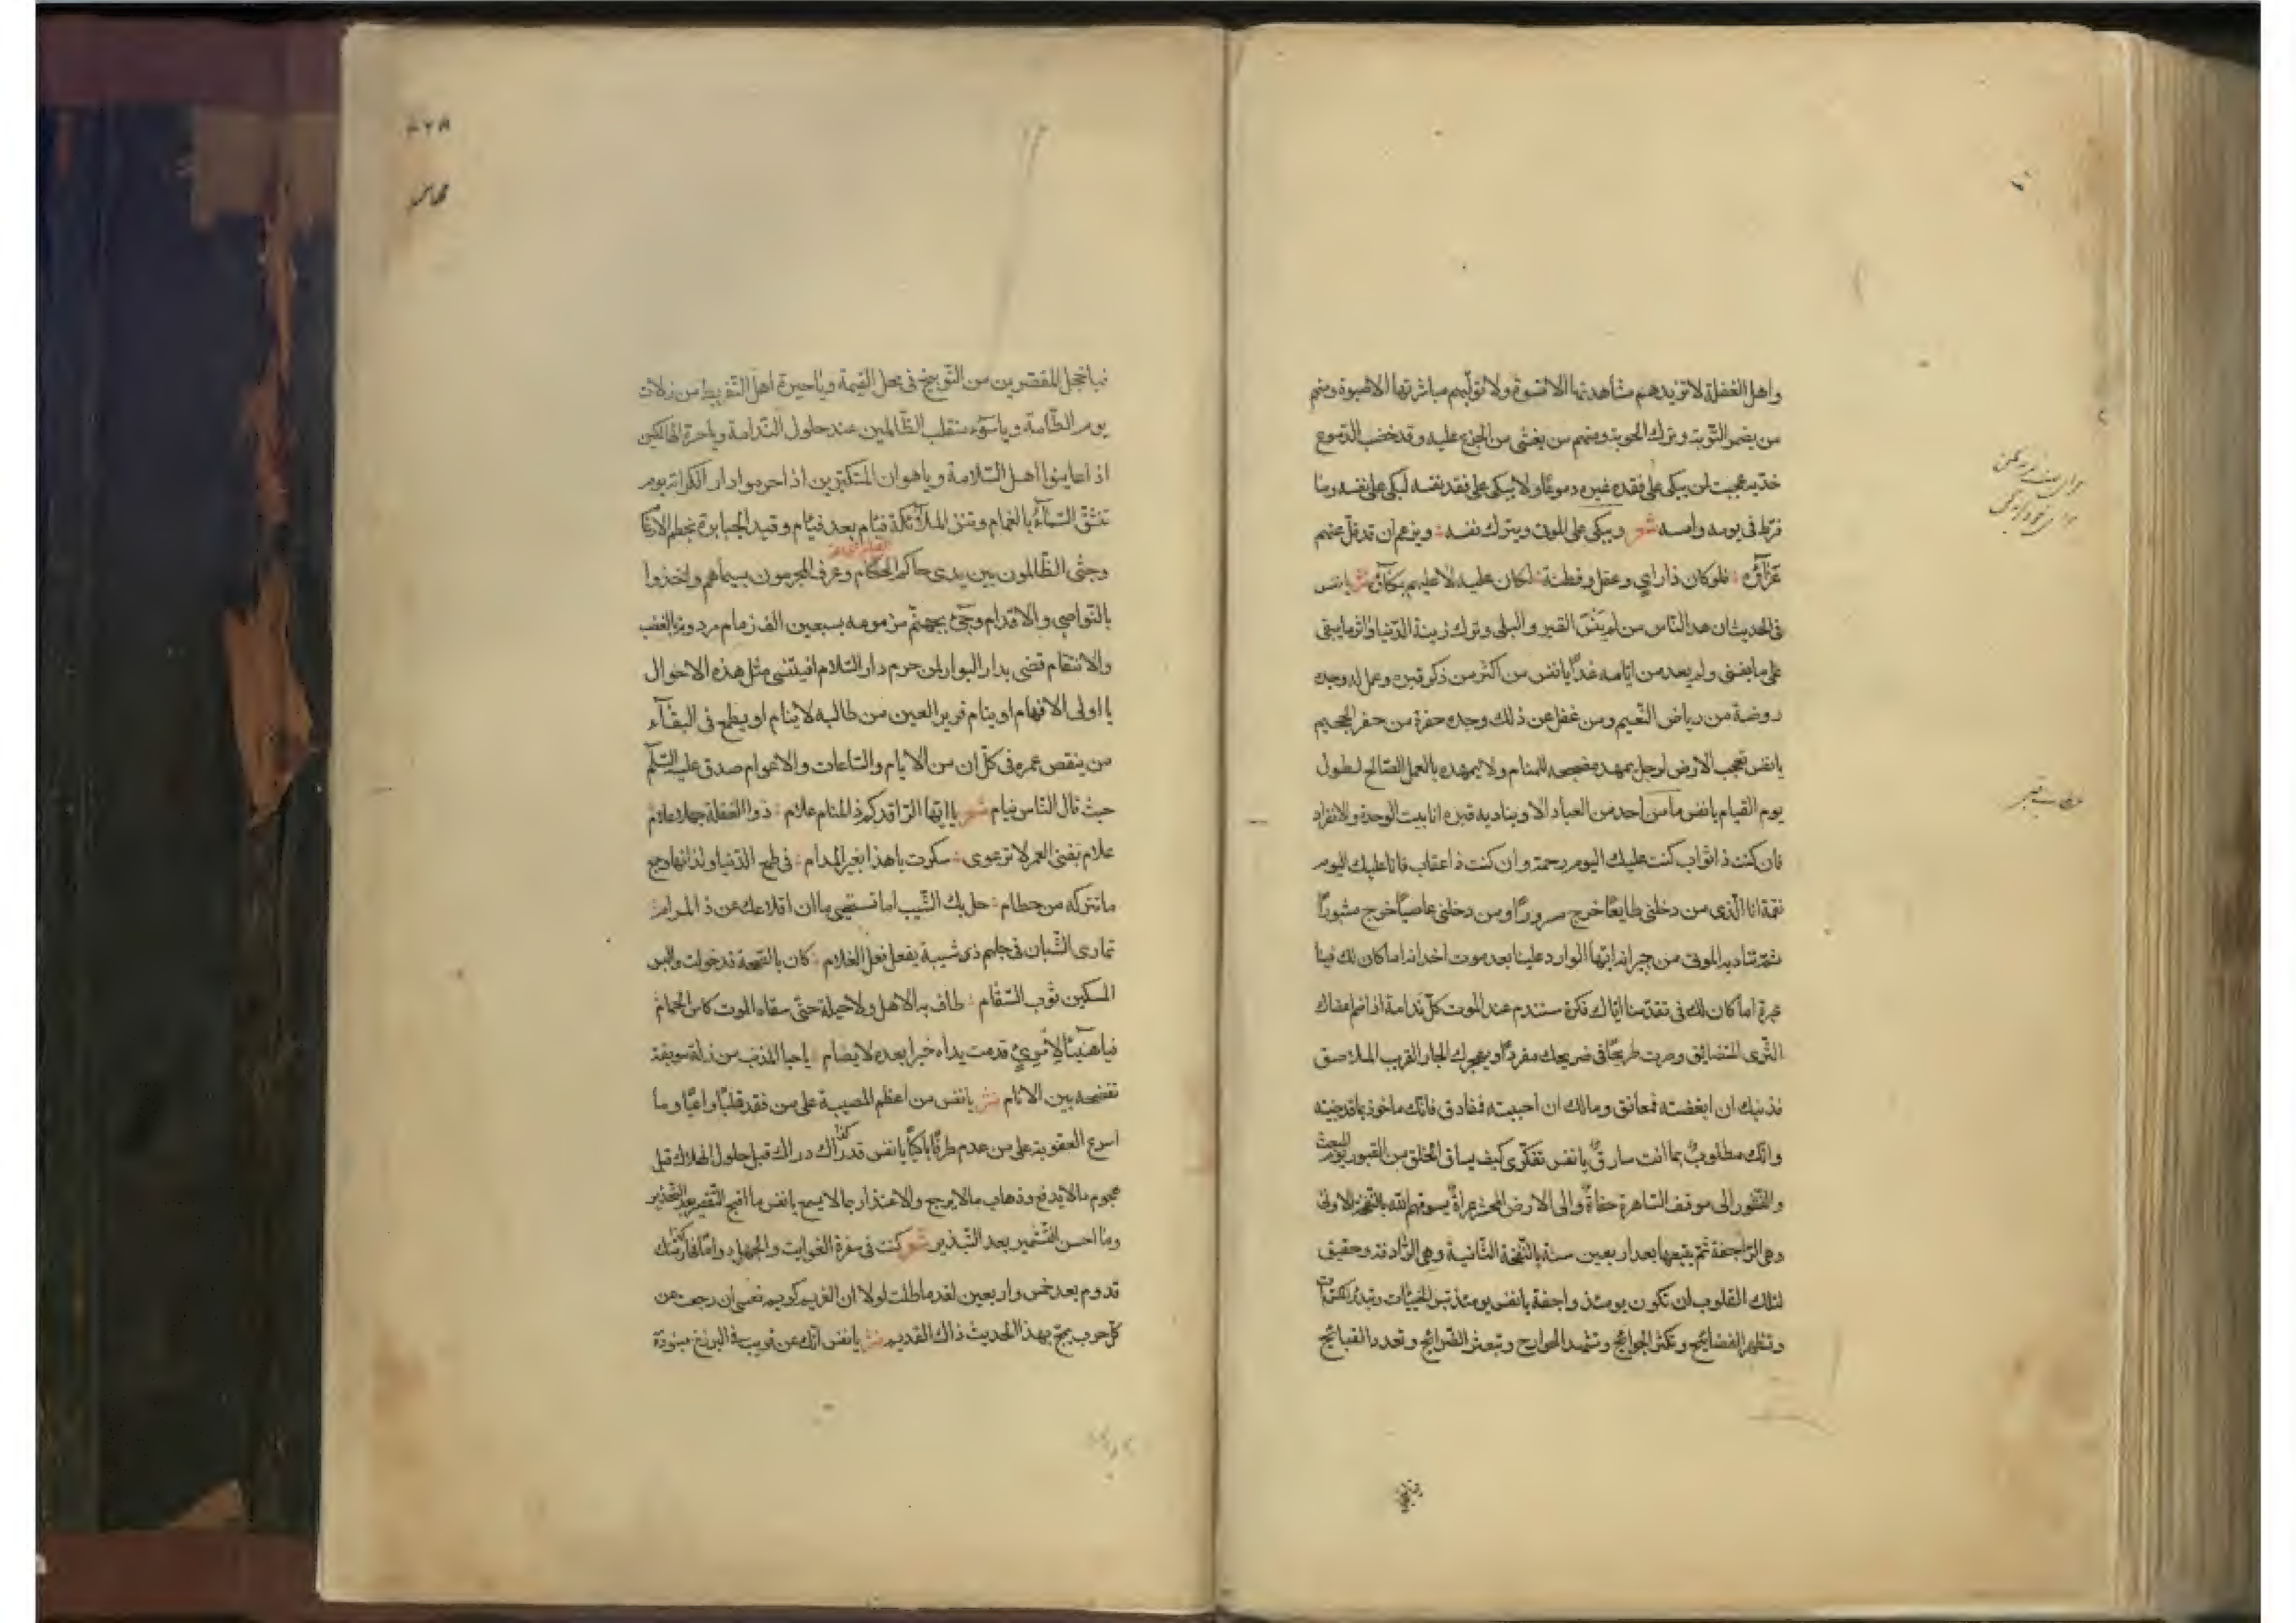 واهل الغفلة لا تزيدهم مشاهدتها الا قسوة ولا توليهم مباشرتها الا صبوة ومنهم
من يضمر التوبة وترك الحوبة ومنهم من يغشى من الجزع عليه وقد خضب الدموع
خديه عجبت لمن يبكى على فقده غيره دموعا ولا يبكى على فقد نفسه ليبكى على نفسه وما
فرط فى يومه وامسه شعر ويبكى على الموتى ويترك نفسه ويزعم ان قد قل عنهم
عزاؤه فلو كان ذا راى وعقل وفطنة لكان عليه لا عليهم بكاؤه نثر يا نفس
فى الحديث ان ازهد الناس من لم ينس القبر والبلى وترك زينة الدنيا واثر ما يبقى
على ما يفنى ولم يعد من ايامه غدا يا نفس من اكثر من ذكر قبره وعمل له وجده
روضة من رياض النعيم ومن غفل عن ذلك وجده حفرة من حفر الجحيم
يا نفس تعجب الارض لرجل يمهد مضجعه للمنام ولا يمهده بالعمل الصالح لطول
يوم القيام يا نفس ما من احد من العباد الا ويناديه قبره انا بيت الوحدة والانفراد
فان كنت ذا ثواب كنت عليك اليوم رحمة وان كنت ذا عقاب فانا عليك اليوم
نقمة انا الذى من دخلنى طايعا خرج سرورا ومن دخلنى عاصيا خرج مثبورا
ثم تناديه الموتى من جيرانه ايها الوارد علينا بعد موت اخدانه اما كان لك فينا
عبرة اما كان لك فى تقدمنا اياك فكرة ستندم عند الموت كل ندامة اذا ضم اعضاك
الثرى المتضايق وصرت طريحا فى ضريحك مفردا ويهجرك الجار القريب الملاصق
فذنبك ان ابغضته فمعانق ومالك ان احببته فمفارق فانك ماخوذ بما قد جنيته
وانك مطلوب بما انت سارق يا نفس تفكرى كيف يساق الخلق من القبور يوم البعث
والنشور الى موقف الساهرة حفاة والى الارض المحشر عراة يسوقهم الله بالنفخة الاولى
وهى الراجفة ثم يتبعها بعد اربعين سنة بالنفخة الثانية وهى الرادفة وحقيق
لتلك القلوب ان تكون يومئذ واجفة يا نفس يومئذ تبين الخبيئات
وتظهر الفضائح وتكثر الجوائح وتشهد الجوارح وتبعث الضرائح وتعدد القبائح
فيا خجل المقصرين من التوبيخ فى محل القيمة ويا حيرة اهل التفريط من زلات
يوم الطامة ويا سوء منقلب الظالمين عند حلول الندامة ويا حسرة الهالكين
اذا عاينوا اهل السلامة ويا هوان المتكبرين اذا حرموا دار الكرامة يوم
تنشق السماء بالغمام وتنزل الملائكة فيام بعد فيام وقيد الجبابرة بخطم الارغام
وجثى الظالمون بين يدى حاكم الحكام وعرف المجرمون بسيماهم واخذوا
بالنواصى والاقدام وجئ بجهنم مزمومة بسبعين الف زمام
والانتقام قضى بدار البوار لمن حرم دار السلام افينسى مثل هذه الاحوال
يا اولى الافهام او ينام قرير العين من طالبه لا ينام او يطمع فى البقاء
من ينقص عمره فى كل ان من الايام والساعات والاعوام صدق عليه السلم
حيث قال الناس نيام شعر يا ايها الراقد كم ذا المنام علام ذو الغفلة
علام تفنى العمر لا ترعوى سكرت يا هذا بغير المدام فى طمع الدنيا ولذاتها وجمع
ما تتركه من حطام حل بك الشيب اما تستحيى ما ان اقلاعك عن ذا المرام
تمارى الشبان فى جهلهم ذى شيبة يفعل فعل الغلام كان بالصحة قد حولت والبس
المسكين ثوب السقام طاف به الاهل ولا حيلة حتى سقاه الموت كاس الحمام
فيا هنيئا لامرئ قدمت يداه خيرا بعده لا يضام يا حيا المذنب من زلة موبقة
تفضحه بين الانام نثر يا نفس من اعظم المصيبة على من فقد قلبا واعيا وما
اسرع العقوبة على من عدم طرفا باكيا يا نفس دراك دراك قبل حلول الهلاك قبل
هجوم ما لا يدفع وذهاب ما لا يرجع والاعتذار بما لا يسمع يا نفس ما اقبح التقصير بعد التحذير
وما احسن التشمير بعد التبذير شعر كنت فى سفرة الغواية والجهل دواما
قدوم بعد خمس واربعين لقد ماطلت لولا ان الغريم كريم
بهذا الحديث ذاك القديم نثر يا نفس انك عن قريب فى البرزخ منبوذة